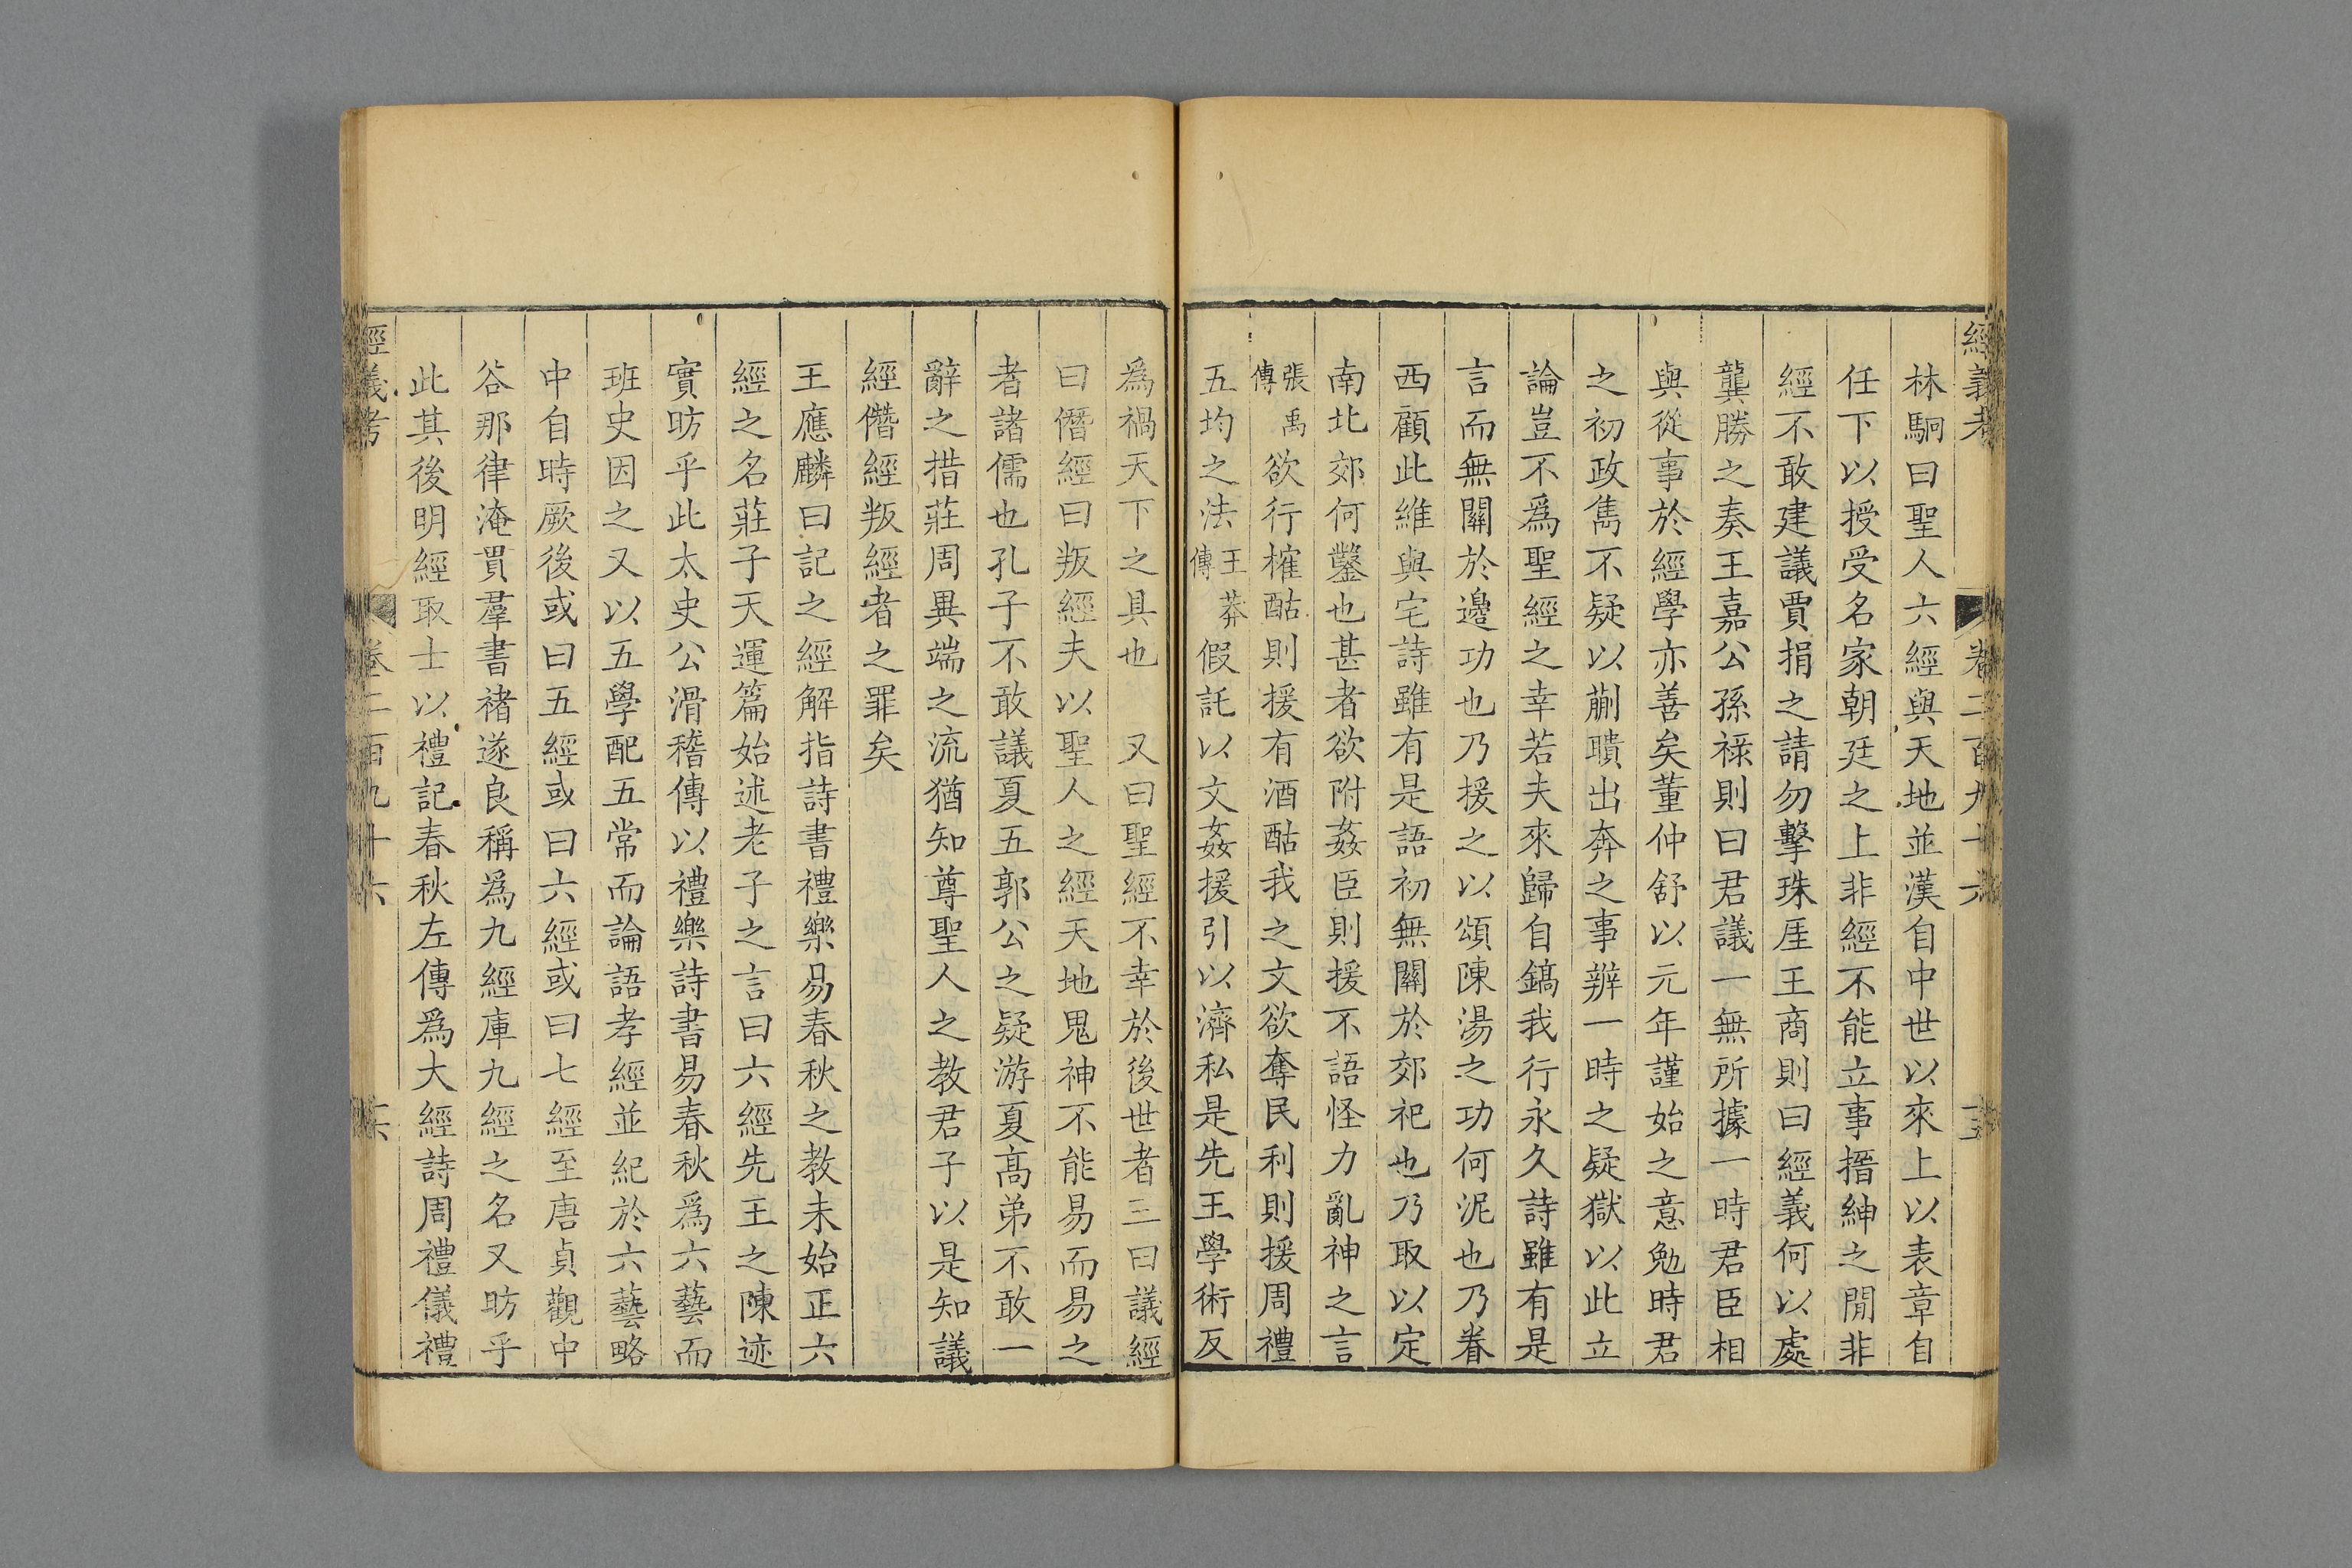 經義考 卷二百九十六 十五
林駉曰聖人六經與天地並漢自中世以來上以表章自
任下以授受名家朝廷之上非經不能立事搢紳之閒非
經不敢建議賈捐之請勿擊珠厓王商則曰經義何以處
龔勝之奏王嘉公孫祿則曰君議一無所據一時君臣相
與從事於經學亦善矣董仲舒以元年謹始之意勉時君
之初政雋不疑以蒯聵出奔之事辨一時之疑獄以此立
論豈不爲聖經之幸若夫來歸自鎬我行永久詩雖有是
言而無關於邊功也乃援之以頌陳湯之功何泥也乃眷
西顧此維與宅詩雖有是語初無關於郊祀也乃取以定
南北郊何鑿也甚者欲附姦臣則援不語怪力亂神之言
張禹傳欲行榷酤則援有酒酤我之文欲奪民利則援周禮
五均之法王莽傳假託以文姦援引以濟私是先王學術反
爲禍天下之具也 又曰聖經不幸於後世者三曰議經
曰僭經曰叛經夫以聖人之經天地鬼神不能易而易之
者諸儒也孔子不敢議夏五郭公之疑游夏高弟不敢一
辭之措莊周異端之流猶知尊聖人之教君子以是知議
經僭經叛經者之罪矣
王應麟曰記之經解指詩書禮樂易春秋之教未始正六
經之名莊子天運篇始述老子之言曰六經先王之陳迹
實昉乎此太史公滑稽傳以禮樂詩書易春秋爲六藝而
班史因之又以五學配五常而論語孝經並紀於六藝略
中自時厥後或曰五經或曰六經或曰七經至唐貞觀中
谷那律淹貫羣書褚遂良稱爲九經庫九經之名又昉乎
此其後明經取士以禮記春秋左傳爲大經詩周禮儀禮
經義考 卷二百九十六